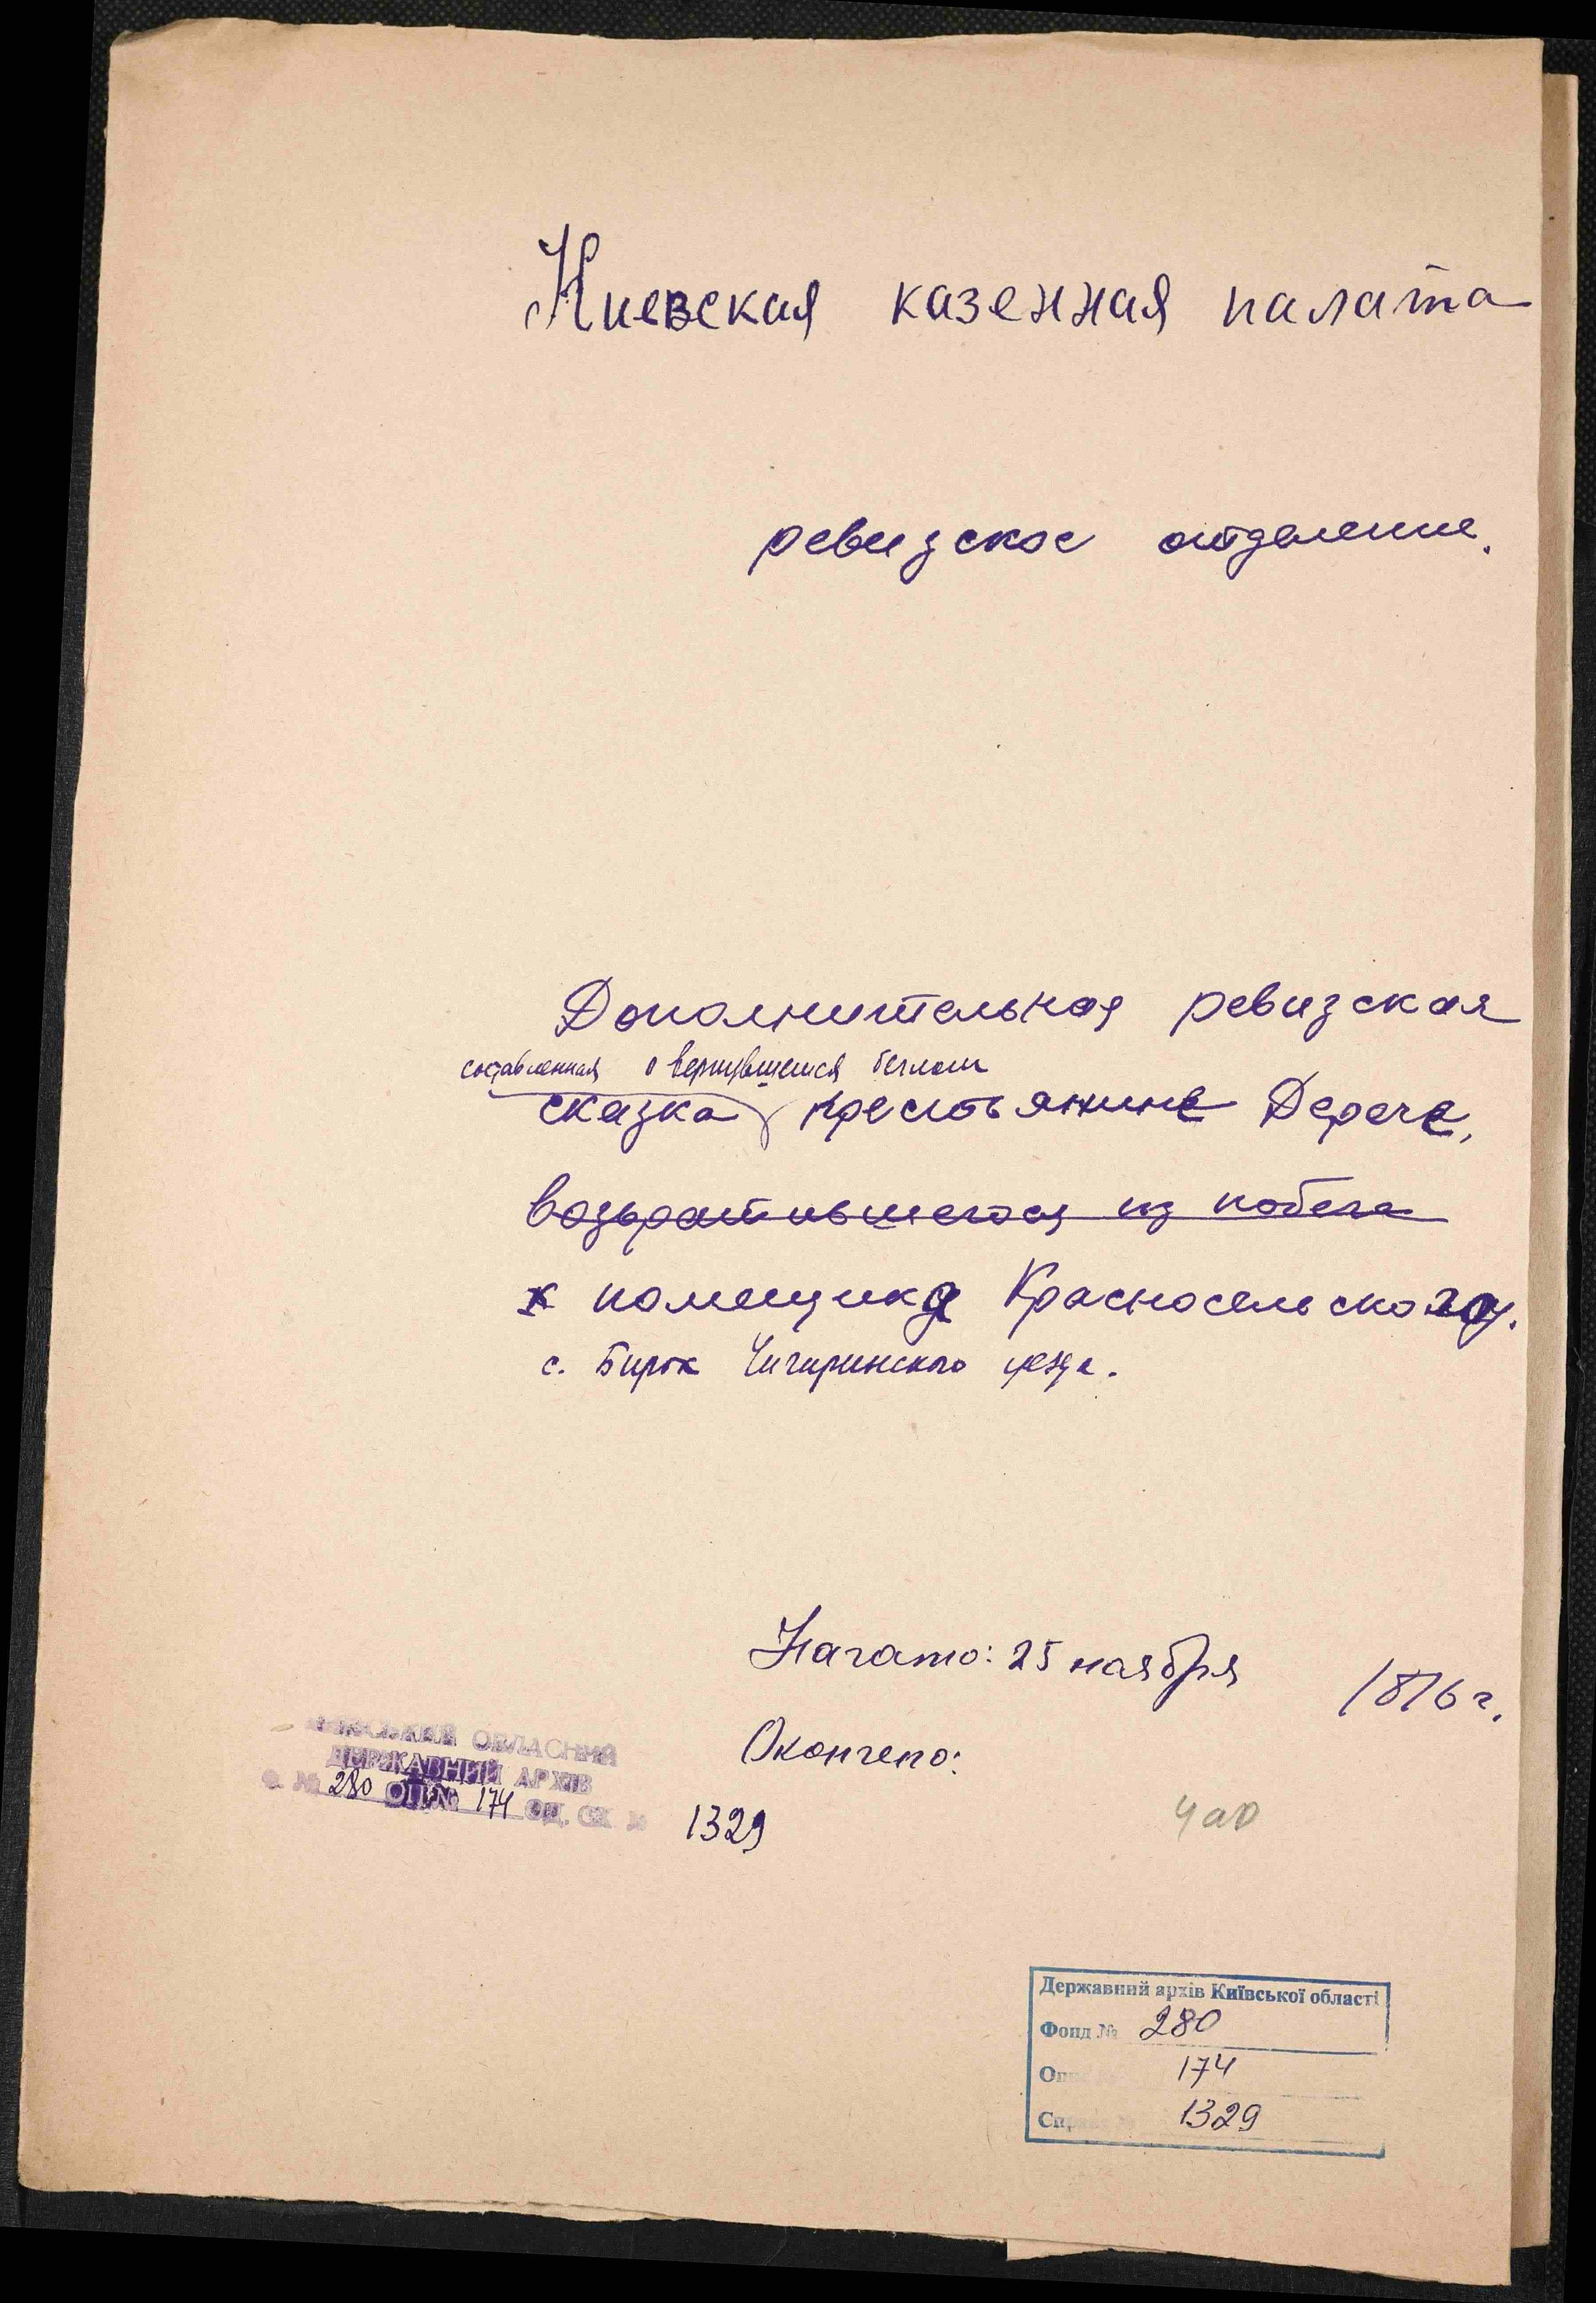 Киевская казенная палата
ревизское отделение.
Дополнительная ревизская
составленная о вернувшемся беглом
сказка крестьянине Дераче,
возвратившегося из побега
к помещика Красносельского.
с. Бирок Чигиринского уезда.
Начато: 25 ноября 1816 г.
Окончено:
ОБЛАСНИЙ
ДЕРЖАВНИЙ АРХІВ
Ф. № 280 ОП. № 174 ОД. ЗБ. № 1329
Державний архів Київської області
Фонд № 280
Опис № 174
Справа № 1329